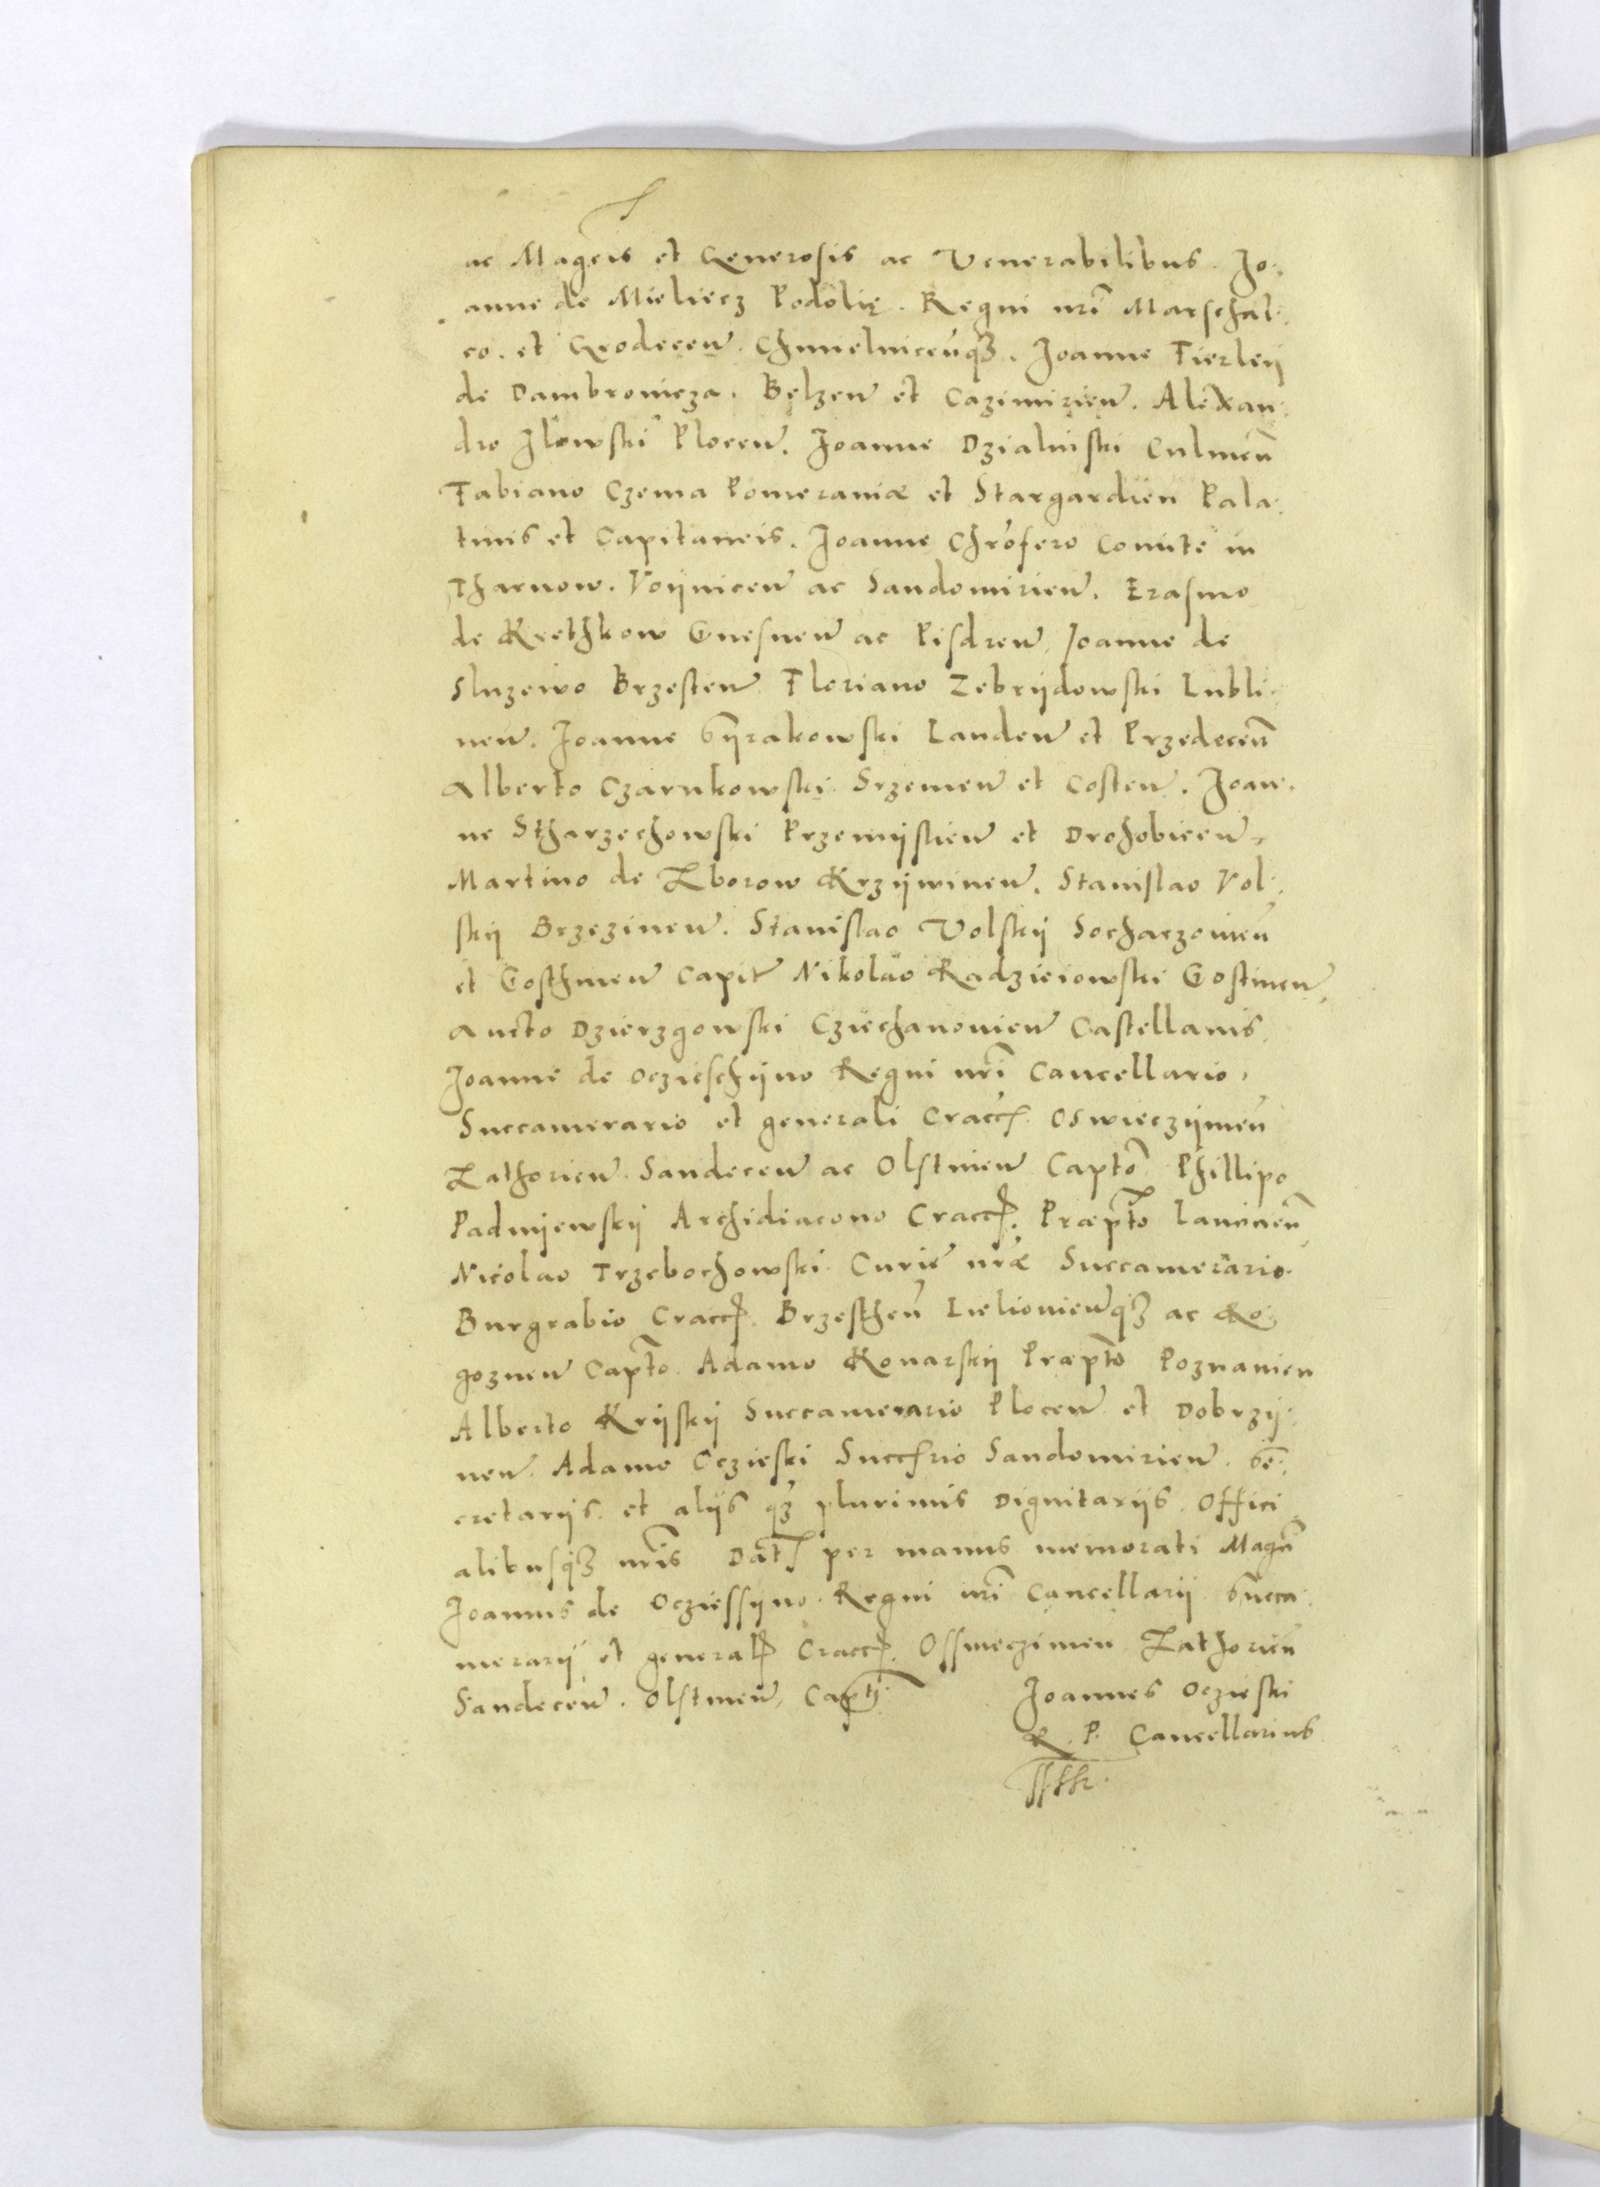 ac Magcis et Generosis ac Venerabilibus. Jo:
anne de Mieliecz Podolię. Regni nri Marschal:
co. et Grodecen. Chmielnicenq3. Joanne Tierleij
de Dambrowicza. Belzen et Cazimirien. Alexan:
dro Jlowski Plocen. Joanne Dzialinski Culmen
Fabiano Czema Pomeraniæ et Stargardien Pala:
tinis et Capitaneis. Joanne Chrofero Comite in
Tharnow. Voijnicen ac Sandomirien. Erasmo
de Krethkow Gnesnen ac Pisdren. Joanne de
Sluzewo Brzesten. Floriano Zebrijdowski Lubli:
nen. Joanne Sijrakowski Landen et Przedecen
Alberto Czarnkowski. Srzemen et Costen. Joan:
ne Stharzechowski Przemijslien et Drohobicen
Martino de Zborow Krzijwinen. Stanislao Vol:
skij Brzezinen. Stanislao Volskij Sochaczovien
et Gosthinen Capit Nikolao Radzieiowski Gostinen
Ancto Dzierzgowski Cziechanovien Castellanis.
Joanne de Oczieschijno Regni nri Cancellario,
Succamerario et generali Cracc. Oswieczijmen
Zathorien. Sandecen ac Olstinen Capto Phillipo
Padnijewskij Archidiacono Cracc. Præpto Lancicien
Nicolao Trzebochowski Curie nræ Succamerario.
Burgrabio Cracc. Brzesthen Lielovienq3 ac Ro:
goznen Capto. Adamo Konarskij Præpto Poznanien
Alberto Krijskij Succamerario Plocen et Dobrzij:
nen. Adamo Oczieski Succrio Sandomirien. Se:
cretarijs. et alijs q3 plurimis Dignitarijs. Offici
alibusq3 nris Dat per manus memorati Magn
Joannis de Ocziessijno. Regni nri Cancellarij Succa:
merarij et general Cracc. Osswieczimen Zathorien
Sandecen. Olstinen, Capti
Joannes Oczieski
R. P. Cancellarius